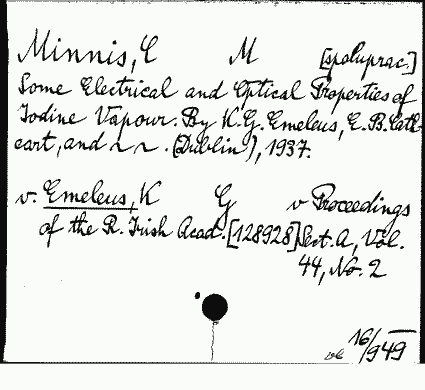 Minnis, C M [spoluprac.]
Some Electrical and Optical Properties of
Iodine Vapour. By K. G. Emeleus, E. B. Cath-
cart, and ~ ~. (Dublin), 1937.
v. Emeleus, K G v Proceedings
of the R. Irish Acad. [128928] Sect. A, Vol.
44, No. 2
16/949